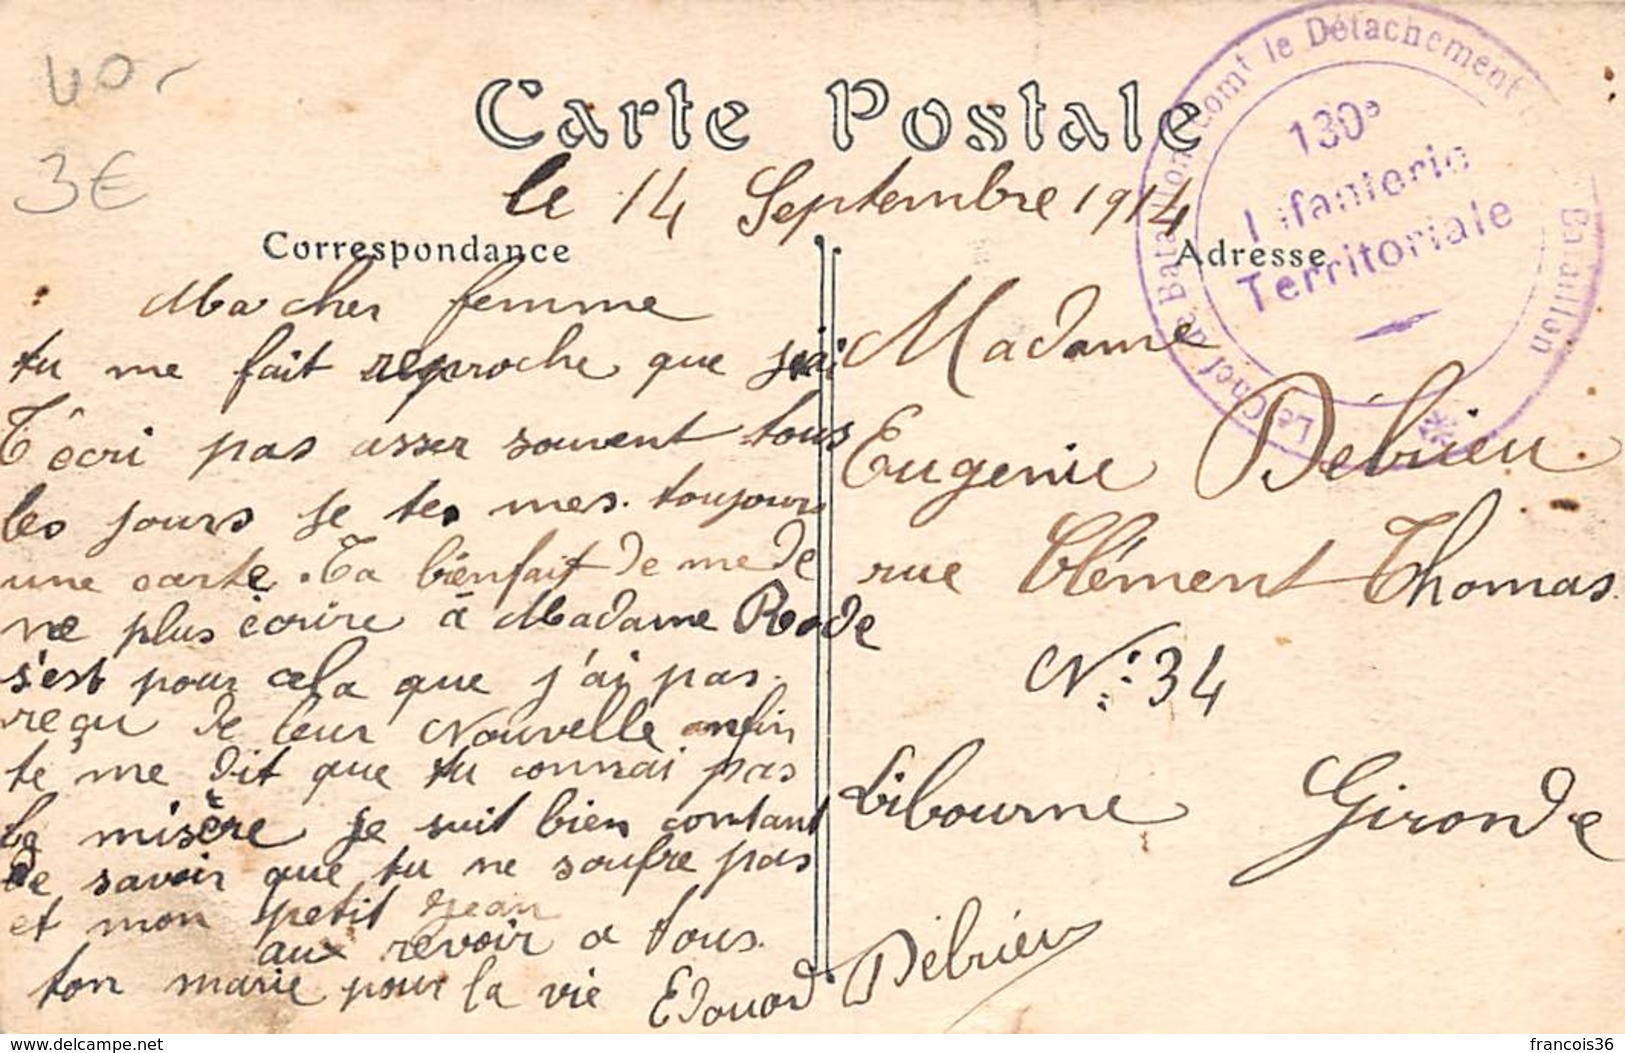 40.-
3€
Carte Postale
le 14 Septembre 1914
Correspondance
Ma cher femme
tu me fait reproche que j'ai
T'êcri pas asser souvent tous
les jours je te mes. toujours
une carte. Ta bienfait de me de
ne plus écrire à Madame Rode
s'est pour cela que j'ai pas.
reçu de leur Nouvelle enfin
te me dit que tu connai pas
la misère je suit bien contant
de savoir que tu ne soufre pas
et mon petit Jean
aux revoir a tous.
ton marie pour la vie Edouard Débrieu
Adresse
Madame
Eugenie Débrieu.
rue Clément Thomas.
N: 34
Libourne Gironde
Le Chef de Bataillon Comt le Détachement
Bataillon
130e
Infanterie
Territoriale
delcampe.net
francois36